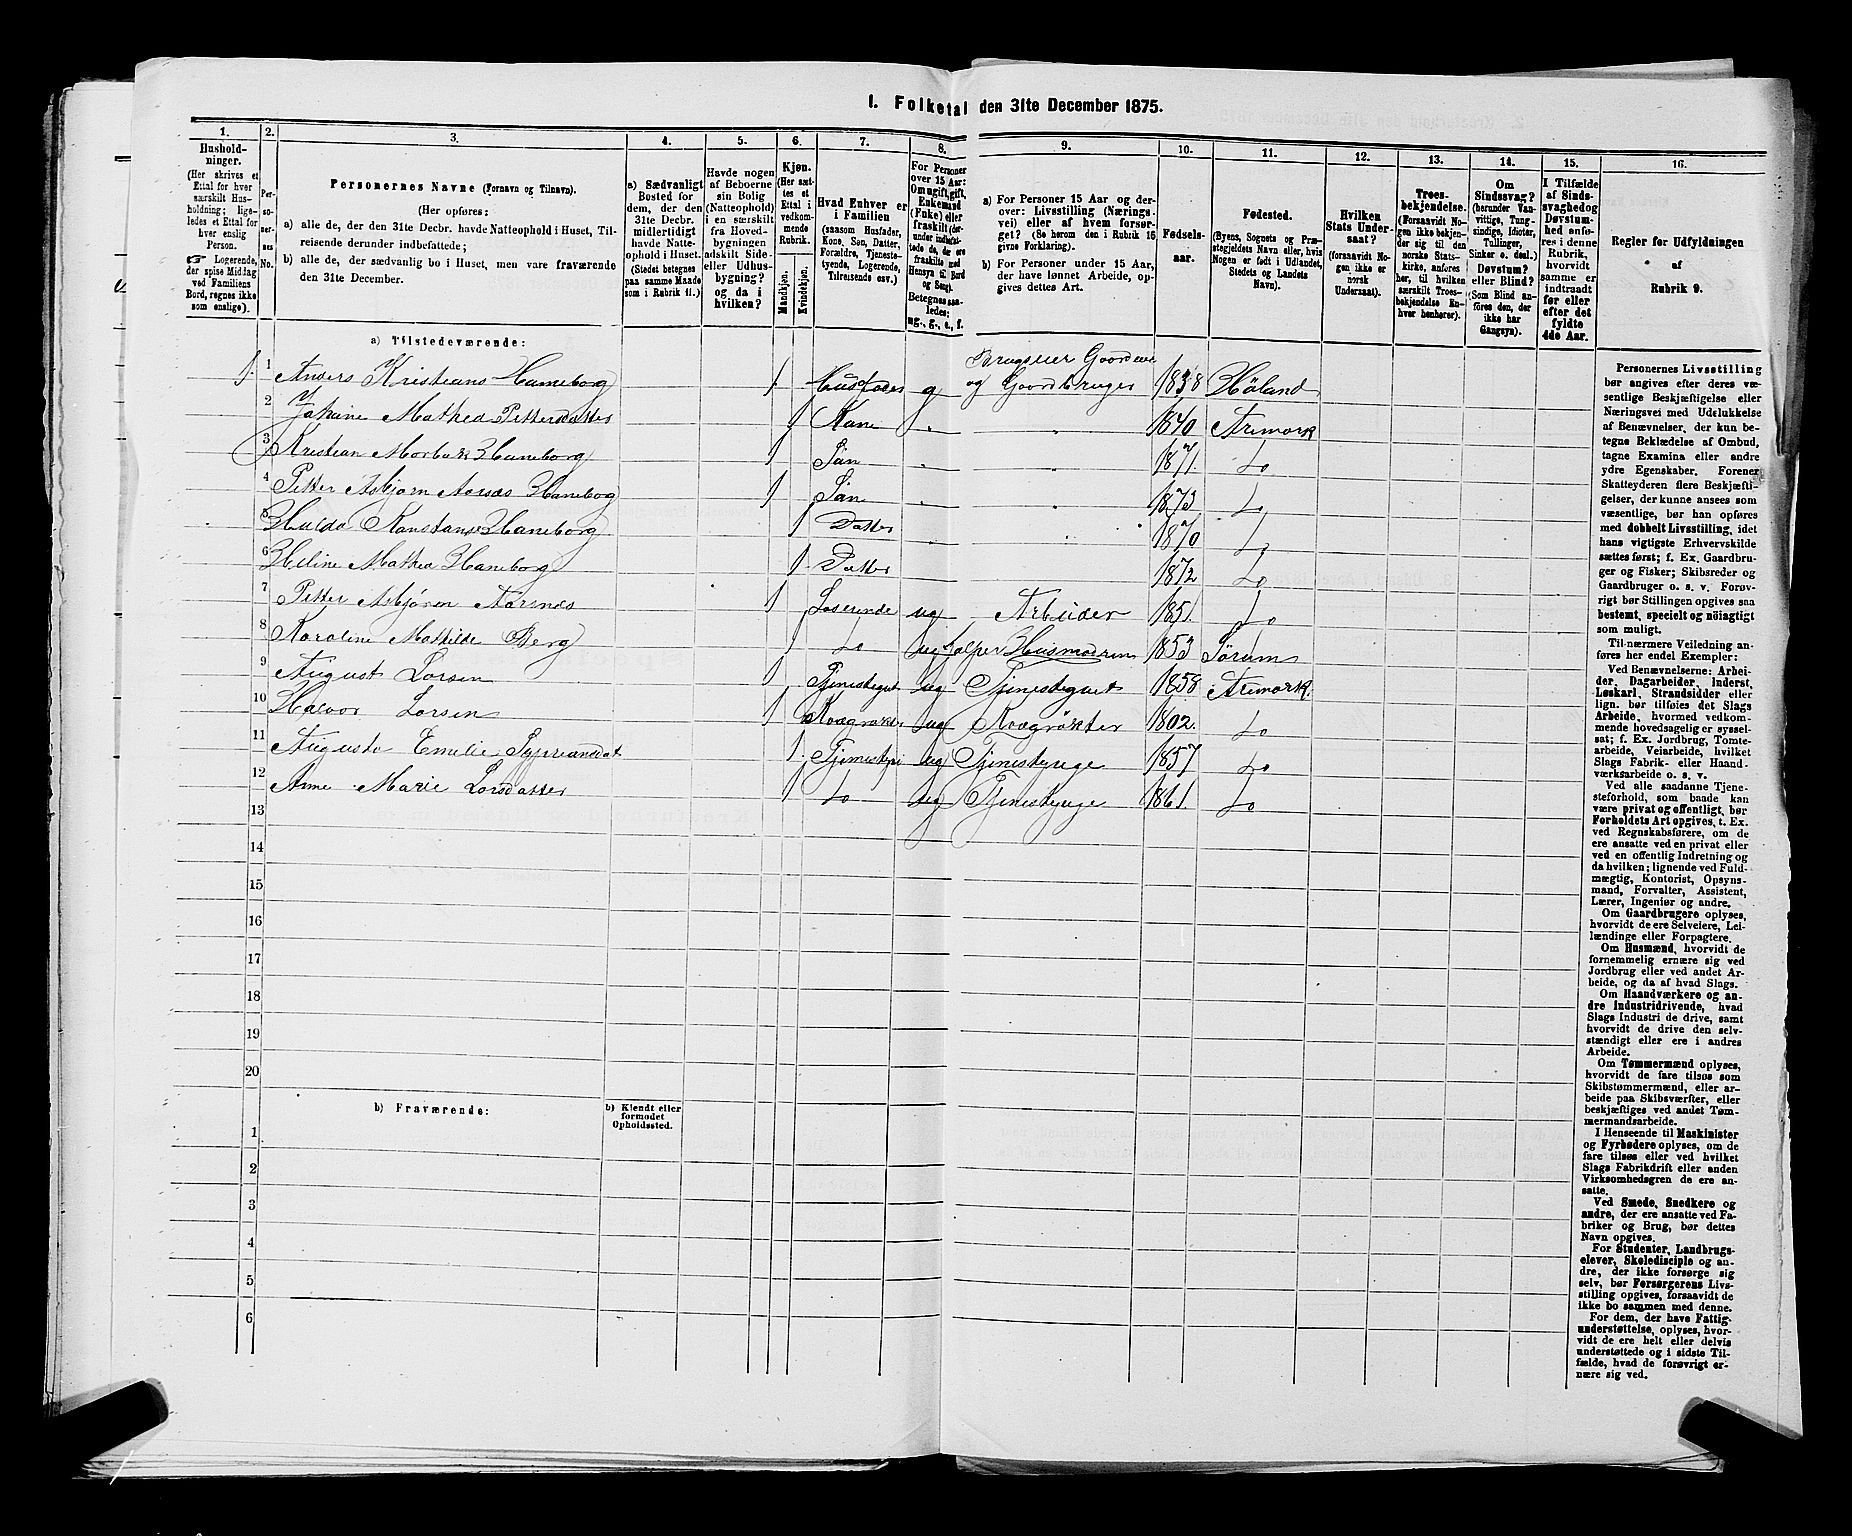 I. Folketal den 31te December 1875.
1. 2. 3. 4. 5. 6. 7. 8. 9. 10. 11. 12. 13. 14. 15. 16.
Husholdninger.
(Her skrives et
Ettal for hver
særskilt Husholdning;
ligeledes et Ettal for
hver enslig
Person.
☞ Logerende,
der spise Middag
ved Familiens
Bord, regnes ikke
som enslige).
Personernes No.
Personernes Navne (Fornavn og Tilnavn).
(Her opføres:
a) alle de, der den 31te Decbr. havde Natteophold i Huset, Tilreisende
derunder indbefattede;
b) alle de, der sædvanlig bo i Huset, men vare fraværende
den 31te December.
a) Sædvanligt
Bosted for
dem, der den
31te Decbr.
midlertidigt
havde Natteophold
i Huset.
(Stedet betegnes
paa samme Maade
som i Rubrik 11.)
Havde nogen
af Beboerne
sin Bolig
(Natteophold)
i en særskilt
fra Hovedbygningen
adskilt Side-
eller Udhusbygning?
og da i
hvilken?
Kjøn.
(Her sættes
et
Ettal i
vedkommende
Rubrik.
Mandkjøn.
Kvindekjøn.
Hvad Enhver er
i Familien
(saasom Husfader,
Kone, Søn, Datter,
Forældre, Tjenestetyende,
Logerende,
Tilreisende osv.)
For Personer
over 15 Aar:
Om ugift, gift,
Enkemand
(Enke) eller
fraskilt
Betegnes saaledes:
ug., g., e., f.
a) For Personer 15 Aar og derover:
Livsstilling (Næringsvei)
eller af hvem forsørget?
(Se herom den i Rubrik 16
givne Forklaring).
b) For Personer under 15 Aar,
der have lønnet Arbeide, opgives
dettes Art.
Fødselsaar.
Fødested.
(Byens, Sognets og Præstegjeldets
Navn eller, hvis
Nogen er født i Udlandet,
Stedets og Landets
Navn).
Hvilken
Stats Undersaat?
(forsaavidt Nogen
ikke er
norsk
Undersaat).
Troesbekjendelse.
(Forsaavidt Nogen
ikke bekjender
sig til den
norske Statskirke,
anføres
her, til hvilken
særskilt Troesbekjendelse
Enhver
henhører).
Om
Sindssvag?
(herunder Vanvittige,
Tungsindige,
Idioter,
Tullinger,
Sinker o. desl.).
Døvstum?
eller Blind?
(Som Blind anføres
den, der
ikke har
Gangsyn).
I Tilfælde
af Sindssvaghed
og
Døvstumhed
anføres
i denne
Rubrik,
hvorvidt
samme er
indtraadt
før eller
efter det
fyldte
4de Aar.
Regler for Udfyldningen
af
Rubrik 9.
a) Tilstedeværende:
1. 1 Anders Kristians Haneborg 1. Husfader g Brugseier Gaardeier og Gaardbruger 1838 Höland
2 Johine Mathea Pettersdatter 1 Kone „ „ 1840 Aremark
3 Kristian Haneborg 1 Sön „ „ 1871. Do
4 Petter Asbjørn Aarnæs Haneborg 1 Sön „ „ 1873 Do
5 Hulda Konstanse Haneborg 1 Datter „ 1870 Do
6 Heline Mathea Haneborg 1 Datter 1872 Do
7 Petter Asbjören Aarnæs 1 Loserende ug Arbeider 1851. Do
8 Karoline Mathilde Berg 1 Do ug hjelper Husmodren 1853 Sörum
9 August Larsen 1 Tjenestegut ug Tjenestegut 1858 Aremark.
10 Halvor Larsen 1 Røgter ug 1802. Do
11 Augusta Emelie 1. ug Tjenestepige 1857 Do
12 Anne Marie Larsdatter 1 Do ug Tjenestepige 1861 Do
13
14
15
16
17
18
19
20
b) Fraværende:
b) Kjendt eller
formodet
Opholdssted.
1
2
3
4
5
6
Personernes Livsstilling
bør angives efter deres væsentlige
Beskjæftigelse eller
Næringsvei med Udelukkelse
af Benævnelser, der kun betegne
Beklædelse af Ombud,
tagne Examina eller andre
ydre Egenskaber. Forener
Skatteyderen flere Beskjæftigelser,
der kunne ansees som
væsentlige, bør han opføres
med dobbelt Livsstilling, idet
hans vigtigste Erhvervskilde
sættes først; f. Ex. Gaardbruger
og Fisker; Skibsreder og
Gaardbruger o. s. v. Forøvrigt
bør Stillingen opgives saa
bestemt, specielt og nöiagtigt
som muligt.
Til nærmere Veiledning anføres
her endel Exempler:
Ved Benævnelserne: Arbeider,
Dagarbeider, Inderst,
Løskarl, Strandsidder eller
lign. bør tilføies det Slags
Arbeide, hvormed vedkommende
hovedsagelig er sysselsat;
f. Ex. Jordbrug, Tomtearbeide,
Veiarbeide, hvilket
Slags Fabrik- eller Haandværksarbeide
o. s. v.
Ved alle saadanne Tjenesteforhold,
som baade kan
være privat og offentligt, bør
Forholdets Art opgives, t. Ex.
ved Regnskabsførere, om de
ere ansatte ved en privat eller
ved en offentlig Indretning og
da hvilken; lignende ved Fuldmægtig,
Kontorist, Opsynsmand,
Forvalter, Assistent,
Lærer, Ingeniør og andre.
Om Gaardbrugere oplyses,
hvorvidt de ere Selveiere, Leilændinge
eller Forpagtere.
Om Husmænd, hvorvidt de
fornemmelig ernære sig ved
Jordbrug eller ved andet Arbeide,
og da af hvad Slags.
Om Haandværkere og andre
Industridrivende, hvad
Slags Industri de drive, samt
hvorvidt de drive den selvstændigt
eller ere i andres
Arbeide.
Om Tømmermænd oplyses,
hvorvidt de fare tilsøs som
Skibstømmermænd, eller arbeide
paa Skibsværfter, eller
beskjæftiges ved andet Tømmermandsarbeide.
I Henseende til Maskinister
og Fyrbødere oplyses, om de
fare tilsøs eller ved hvilket
Slags Fabrikdrift eller anden
Virksomhedsgren de ere ansatte.
Ved Smede, Snedkere og
andre, der ere ansatte ved Fabriker
og Brug, bør dettes
Navn opgives.
For Studenter, Landbrugselever,
Skoledisciple og andre,
der ikke forsørge sig
selv, bør Forsørgerens Livsstilling
opgives, forsaavidt de
ikke bo sammen med denne.
For dem, der have Fattigunderstøttelse,
oplyses, hvorvidt
de ere helt eller delvis
understøttede og i sidste Tilfælde,
hvad de forøvrigt ernære
sig ved.